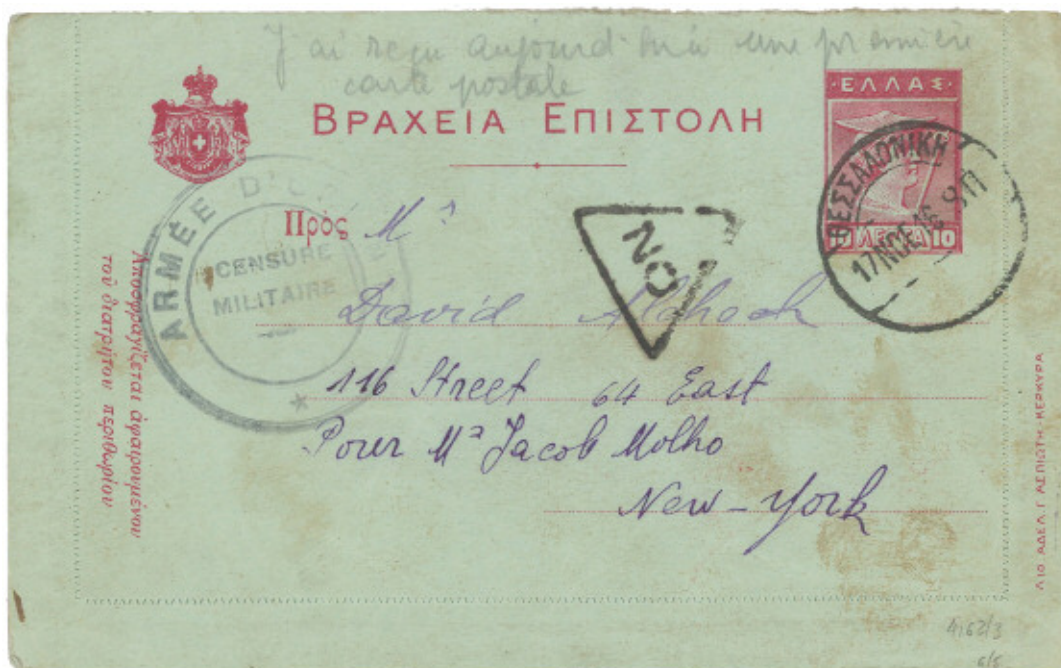 J'ai reçu aujourd'hui une première
carte postale
ΒΡΑΧΕΙΑ ΕΠΙΣΤΟΛΗ
·ΕΛΛΑΣ·
10 ΛΕΠΤΑ 10
ΘΕΣΣΑΛΟΝΙΚΗ
17 ΝΟΕ 16
ARMÉE D'
CENSURE
MILITAIRE
Πρὸς Mr
NO
David
116 Street 64 East
Pour Mr Jacob Molho
New-York
Ἀποσφραγίζεται ἀφαιρουμένου
τοῦ διατρήτου περιθωρίου
ΛΙΘ. ΑΔΕΛ. Γ. ΑΣΠΙΩΤΗ-ΚΕΡΚΥΡΑ